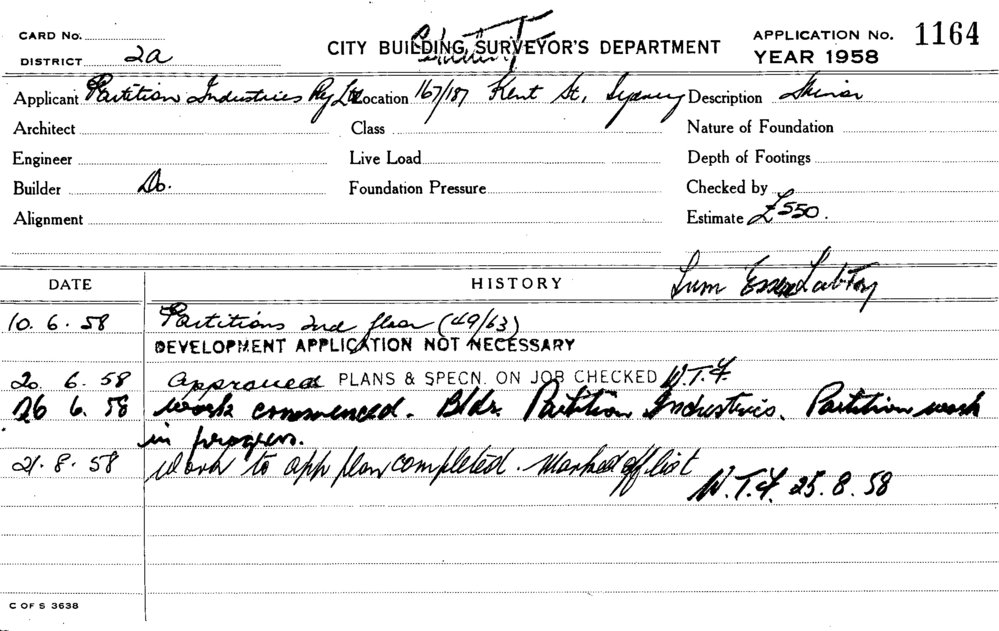 CARD No.
DISTRICT 2a
CITY BUILDING SURVEYOR'S DEPARTMENT
APPLICATION No. 1164
YEAR 1958
Applicant Partition Industries Pty Ltd Location 167/187 Kent St, Sydney Description Minor
Architect Class Nature of Foundation
Engineer Live Load Depth of Footings
Builder Do. Foundation Pressure Checked by
Alignment Estimate £550.
DATE HISTORY
10. 6. 58 Partitions 2nd floor (49/63)
DEVELOPMENT APPLICATION NOT NECESSARY
20. 6. 58 Approved PLANS & SPECN. ON JOB CHECKED W.T.F.
26 6. 58 work commenced. Bldr. Partition Industries. Partition work
in progress.
21. 8. 58 Work to app plan completed. Marked off list
W.T.F. 25.8.58
C OF S 3638